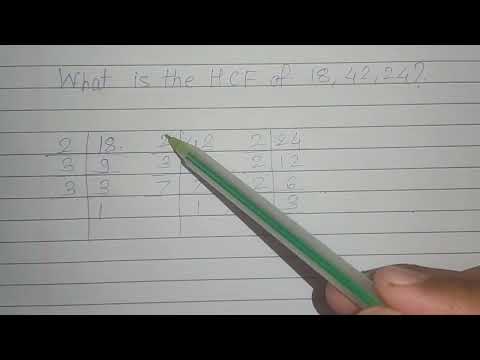 What is the HCF of 18, 42, 24?.
2 18. 2 42 2 24
3 9 3 2 12
3 3 7 7 2 6
1 1 3